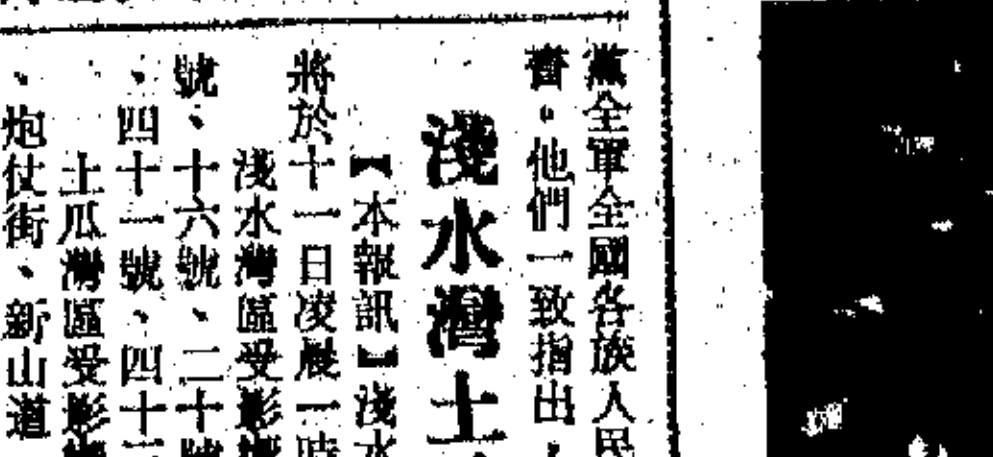 黨全軍全國各族人民
。他們一致指出，
淺水灣土
【本報訊】淺水
將於十一日凌晨一時
淺水灣區受影響
號、十六號、二十號
、四十一號、四十三
土瓜灣區受影響
、炮仗街、新山道